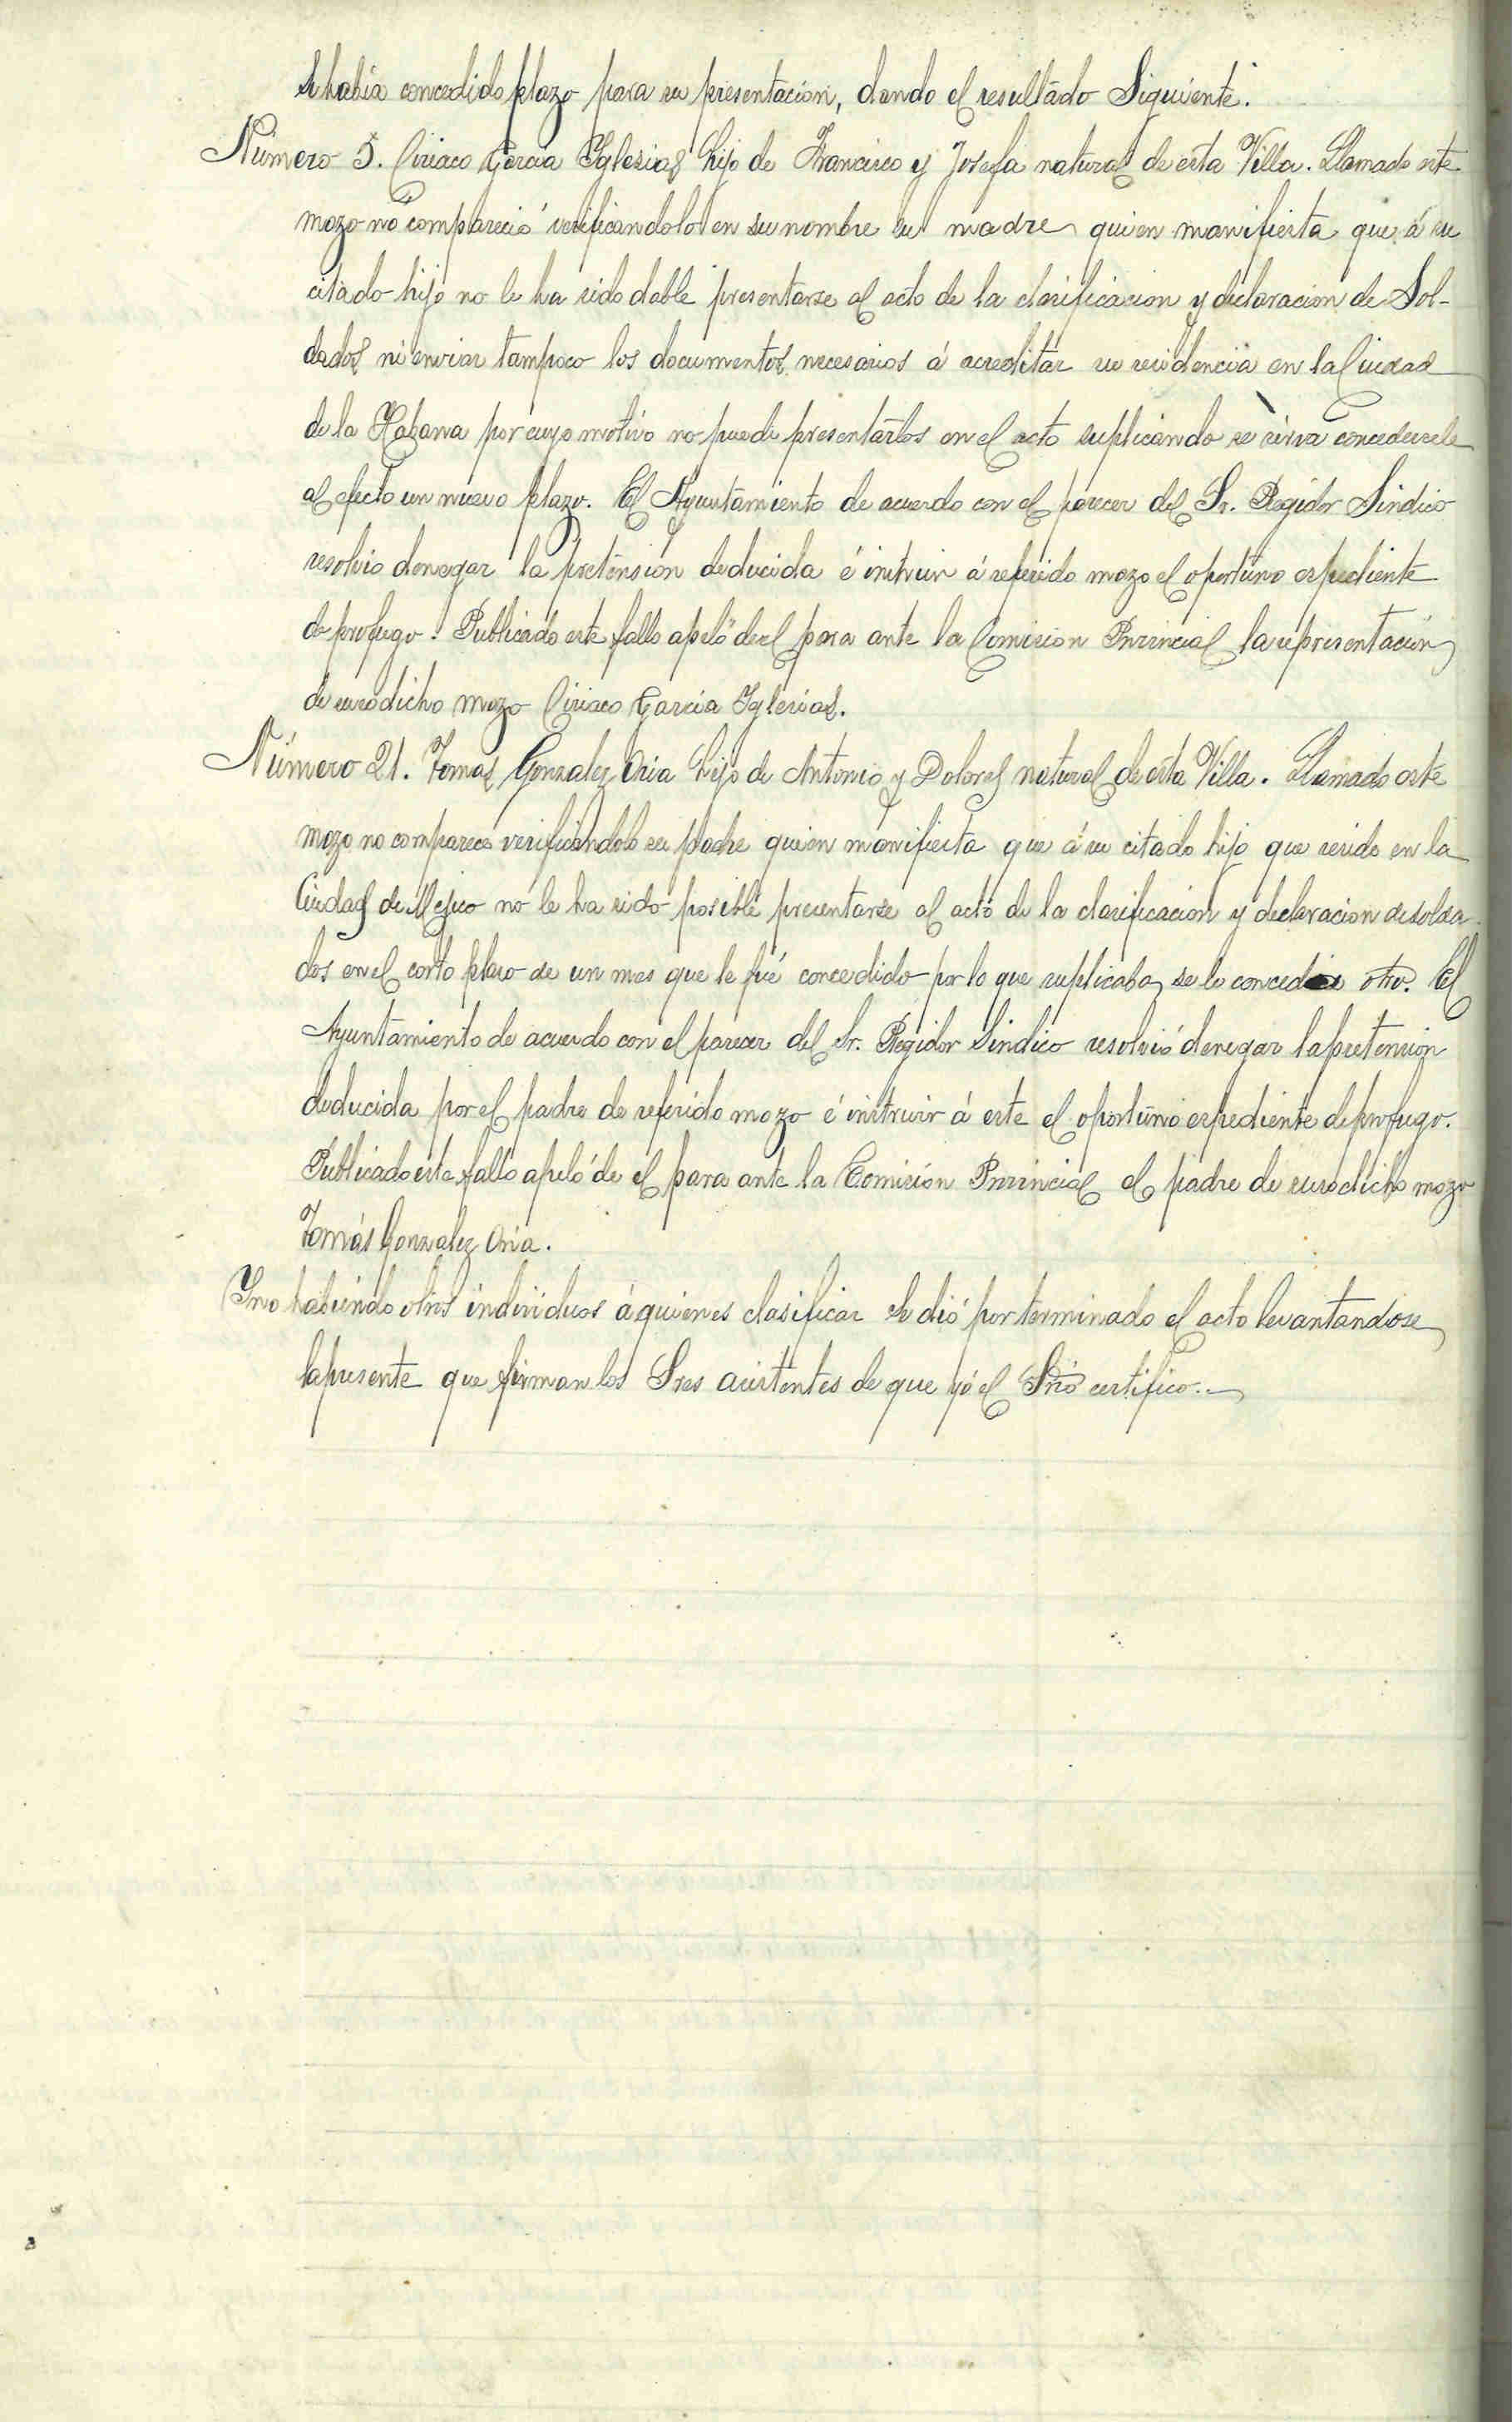 se habia concedido plazo para su presentación, dando el resultado Siguiente.
Número 5. Ciriaco García Iglesias hijo de Francisco y Josefa natural de esta Villa. Llamado este
mozo no compareció verificandolo en su nombre su madre quien manifiesta que á su
citado hijo no le ha sido dable presentarse al acto de la clasificacion y declaracion de Sol-
dados ni enviar tampoco los documentos necesarios á acreditar su residencia en la Ciudad
de la Habana por cuyo motivo no puede presentarlos en el acto suplicando se sirva concedersele
al efecto un nuevo plazo. El Ayuntamiento de acuerdo con el parecer del Sr. Regidor Sindico
resolvió denegar la pretensión deducida é instruir á referido mozo el oportuno espediente
de profugo. Publicado este fallo apeló de el para ante la Comisión Provincial la representación
de susodicho mozo Ciriaco García Iglesias.
Número 21. Tomas Gonzalez Oria hijo de Antonio y Dolores natural de esta Villa. Llamado este
mozo no comparece verificandolo su padre quien manifiesta que á su citado hijo que reside en la
Ciudad de Mejico no le ha sido posible presentarse al acto de la clasificación y declaracion de solda
dos en el corto plazo de un mes que le fué concedido por lo que suplicaba se le conceda otro. El
Ayuntamiento de acuerdo con el parecer del Sr. Regidor Sindico resolvió denegar la pretension
deducida por el padre de referido mozo é instruir á este el oportuno espediente de profugo.
Publicado este fallo apeló de el para ante la Comisión Provincial el padre de susodicho mozo
Tomás Gonzalez Oria.
Y no habiendo otros individuos á quienes clasificar se dió por terminado el acto levantandose
la presente que firman los Sres asistentes de que yó el Srio certifico.